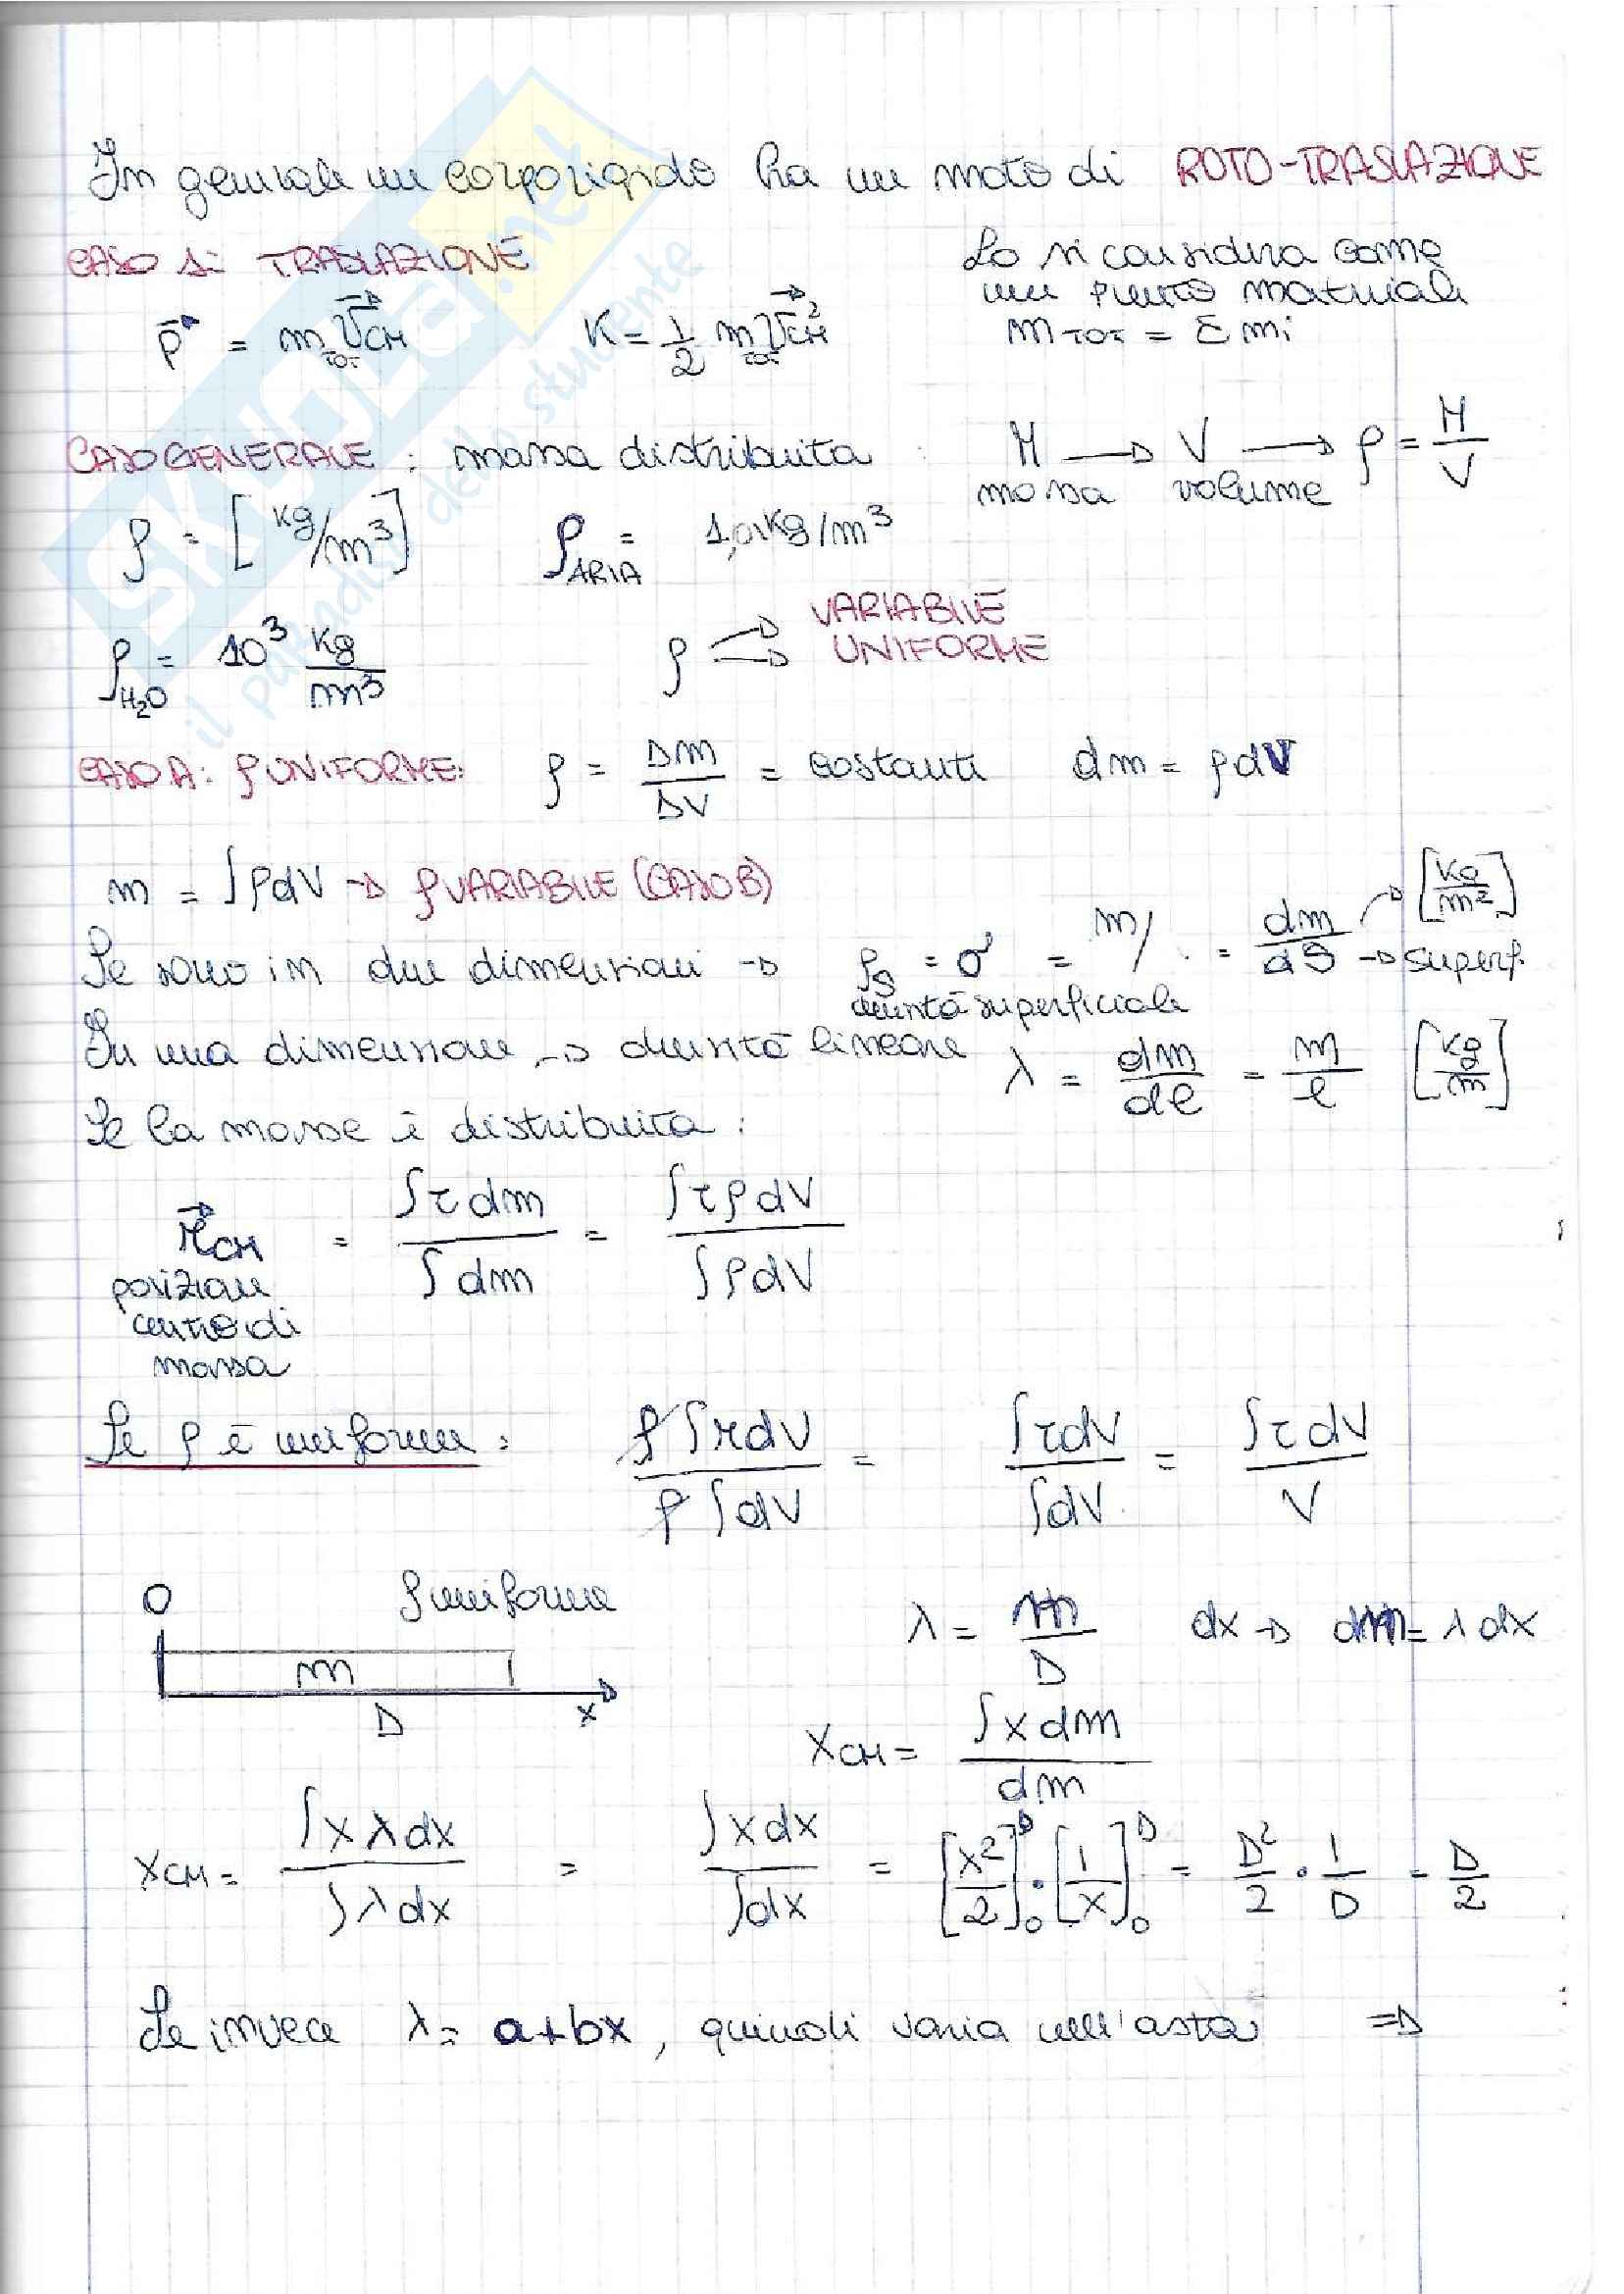 In generale un corpo rigido ha un moto di ROTO-TRASLAZIONE
CASO di TRASLAZIONE
Lo si considera come
un punto materiale
p⃗ = m_TOT v⃗_CM K = 1/2 m_TOT v⃗_CM² m_TOT = Σ mi
CASO GENERALE: massa distribuita: M → V → ρ = M/V
massa volume
ρ = [kg/m³] ρ_ARIA = kg/m³
ρ_H₂O = 10³ kg/m³ ρ → VARIABILE
→ UNIFORME
CASO A: ρ UNIFORME: ρ = ΔM/ΔV = costante dm = ρdV
m = ∫ρdV → ρ VARIABILE (CASO B)
Se sono in due dimensioni → ρ_S = σ = m/ = dm/dS → [kg/m²] → superf.
densità superficiale
In una dimensione → densità lineare λ = dm/dℓ = m/ℓ [kg/m]
Se la massa è distribuita:
r⃗_CM = ∫r dm / ∫dm = ∫rρdV / ∫ρdV
posizione
centro di
massa
Se ρ è uniforme: ρ∫rdV / ρ∫dV = ∫rdV / ∫dV = ∫rdV / V
O ρ uniforme λ = m/D dx → dm = λdx
m
D x
x_CM = ∫x dm / dm
x_CM = ∫xλdx / ∫λdx = ∫xdx / ∫dx = [x²/2]₀ᴰ · [1/x]₀ᴰ = D²/2 · 1/D = D/2
Se invece λ = a+bx, quindi varia nell'asta ⇒
il paradiso dello studente
SKUOLA.net